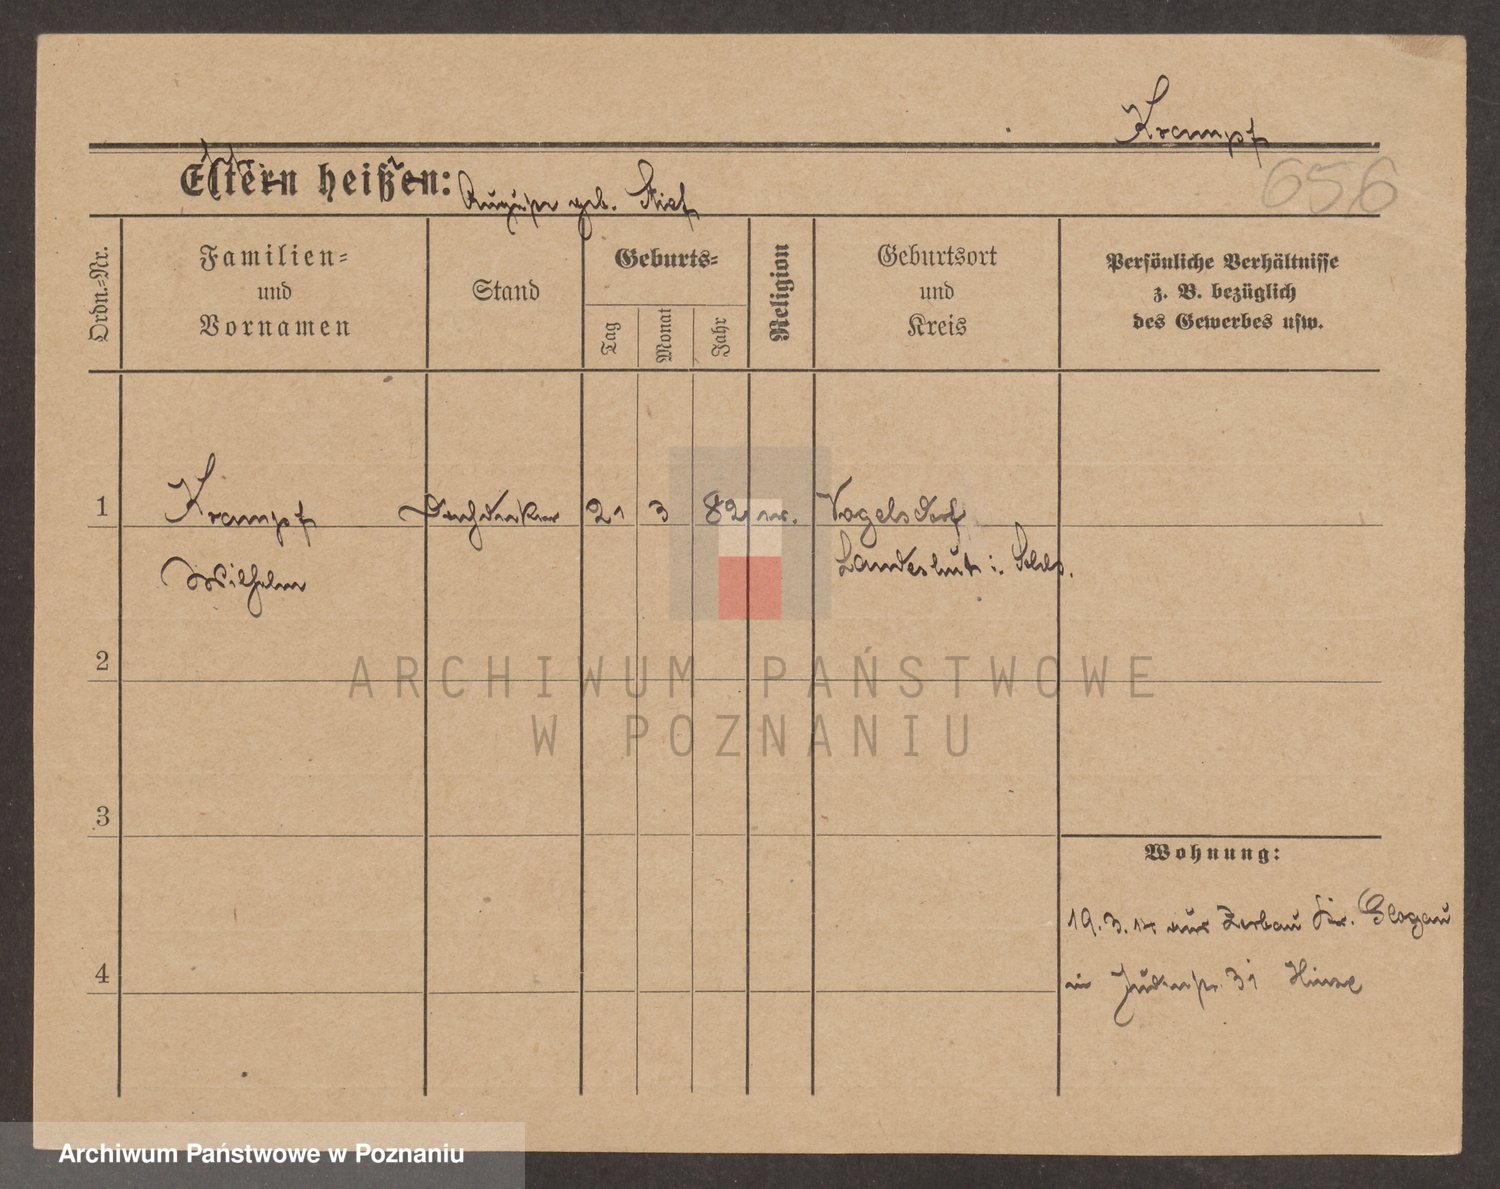 Krampf
656
Eltern heißen:
Auguste geb. Stief
Ordn.-Nr.
Familien-
und
Vornamen
Stand
Geburts-
Tag
Monat
Jahr
Religion
Geburtsort
und
Kreis
Persönliche Verhältnisse
z. B. bezüglich
des Gewerbes usw.
1
Krampf
21
3
82
Vogelsdorf
Wilhelm
Landeshut i. Schls.
2
ARCHIWUM PAŃSTWOWE
W POZNANIU
3
Wohnung:
19.3.14 aus Zerbau Kr. Glogau
4
in 31
Archiwum Państwowe w Poznaniu